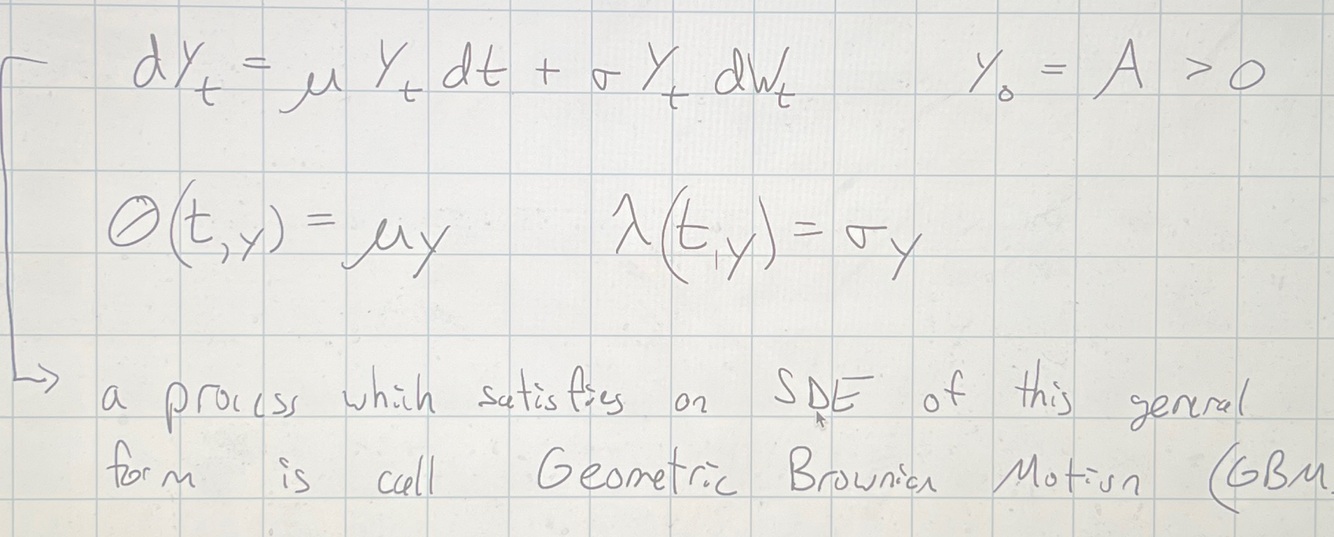 dY_t = μ Y_t dt + σ Y_t dW_t    Y_0 = A > 0
Θ(t,y) = μy    λ(t,y) = σy
↳ a process which satisfies an SDE of this general
form is call Geometric Brownian Motion (GBM